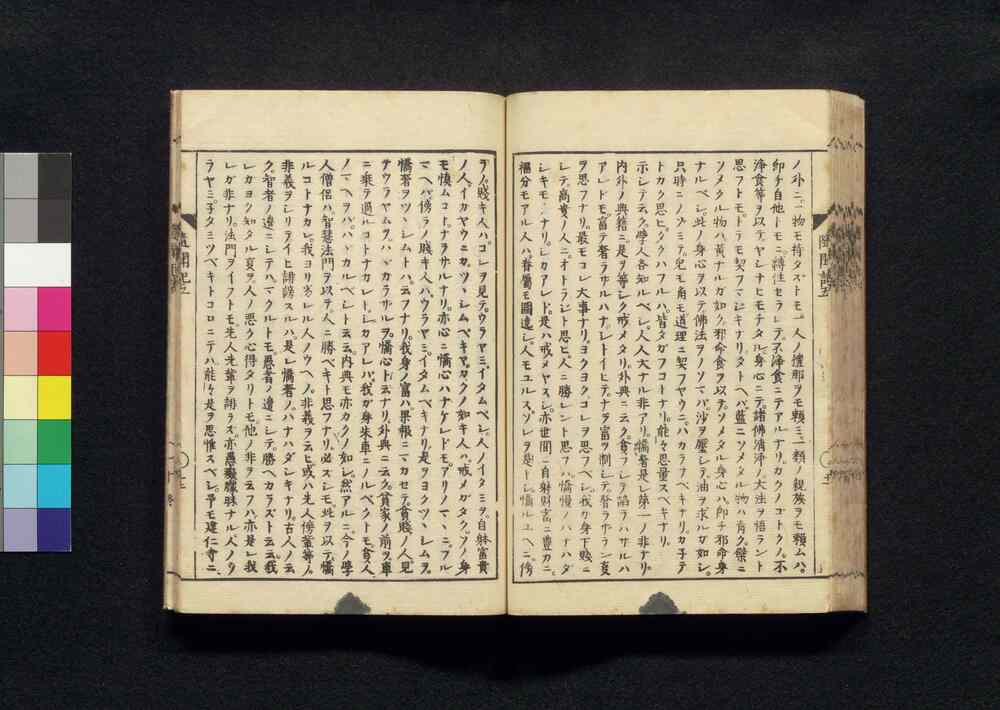 ノ外ニ一物モ持タズトモ一人ノ檀那ヲモ頼ミ一類ノ親族ヲモ頼ムハ。
即チ自他トモニ縛住セラレテ不浄食ニテアルナリカクノコトクノ。不
浄食等ヲ以テヤシナヒモチタル身心ニテ諸佛清浄ノ大法ヲ悟ラント
思フトモ。トテモ契フマシキナリ。タトヘバ藍ニソメタル物ハ青ク。檗ニ
ソメタル物ハ黄ナルガ如ク。邪命食ヲ以テソメタル身心ハ即チ邪命身
ナルベシ。此ノ身心ヲ以テ佛法ヲノソマバ。沙ヲ壓シテ油ヲ求ルガ如シ。
只時ニノゾミテ。兎モ角モ道理ニ契フヤウニハカラフベキナリ。カ子テ
トカク思ヒタクハフルハ。皆タガフコトナリ。能々思量スベキナリ
示シテ云ク。學人各知ルベシ。人人大ナル非アリ。憍奢是レ第一ノ非ナリ。
内外ノ典籍ニ是ヲ等シク戒メタリ。外典ニ云ク貪フシテ諂ハザルハ
アレドモ。富テ奢ラザルハナシトイヒテ。ナヲ富ヲ制シテ奢ラザラン叓
ヲ思フナリ。最モコレ大事ナリ。ヨクヨクコレヲ思フベシ。我ガ身下賤ニ
シテ高貴ノ人ニオトラジト思ヒ。人ニ勝レント思フハ憍慢ノハナハダ
シキモノナリ。シカアレド。是ハ戒メヤスシ。亦世間ニ自躰財寶ニ豊カニ
福分モアル人ハ。眷屬モ圍遶シ。人モユルス。ソレヲ是トシ憍ルユヘニ。傍
ラノ賤キ人ハコレヲ見テ。ウラヤミイタムベシ。人ノイタミヲ。自躰富貴
ノ人。イカヤウニカツヽシムベキヤ。カクノ如キ人ハ。戒メガタク。ソノ身
モ慎ムコトナラザルナリ。亦心ニ憍心ハナケレドモ。アリノマヽニフル
マヘバ。傍ラノ賤キ人ハウラヤミイタムベキナリ。是ヲヨクツヽシムヲ。
憍奢ヲツヽシムトハ云フナリ。我身ノ富ハ果報ニマカセテ。貧賤ノ人見
テウラヤムヲ。ハヾカラザルヲ憍心ト云ナリ。外典ニ云ク。貧家ノ前ヲ車
ニ乗テ過ルコトナカレト。シカアレバ。我ガ身朱車ニノルベクトモ貧人
ノマヘヲバ。ハヾカルベシト云云。内典モ亦カクノ如シ。然アルニ今ノ學
人僧侶ハ。智慧法門ヲ以テ。人ニ勝ベキト思フナリ。必スシモ。此ヲ以テ憍
ルコトナカレ。我ヨリ劣レル人ノウヘノ。非義ヲ云ヒ。或ハ先人傍輩等ノ。
非義ヲシリテ。イヒ誹謗スルハ。是レ憍奢ノハナハダシキナリ。古人ノ云
ク。智者ノ邊ニシテハ。マクルトモ。愚者ノ邊ニシテ。勝ベカラズト云云。我
レガヨク知タル叓ヲ。人ノ悪ク心得タリトモ。他ノ非ヲ云フハ。亦是レ我
レガ非ナリ。法門ヲイフトモ。先人先輩ヲ謗ラズ。亦愚癡矇昧ナル人ノウ
ラヤミ子タミツベキトコロニテハ。能々是ヲ思惟スベシ。予モ建仁寺ニ
隨聞記二
隨聞記二